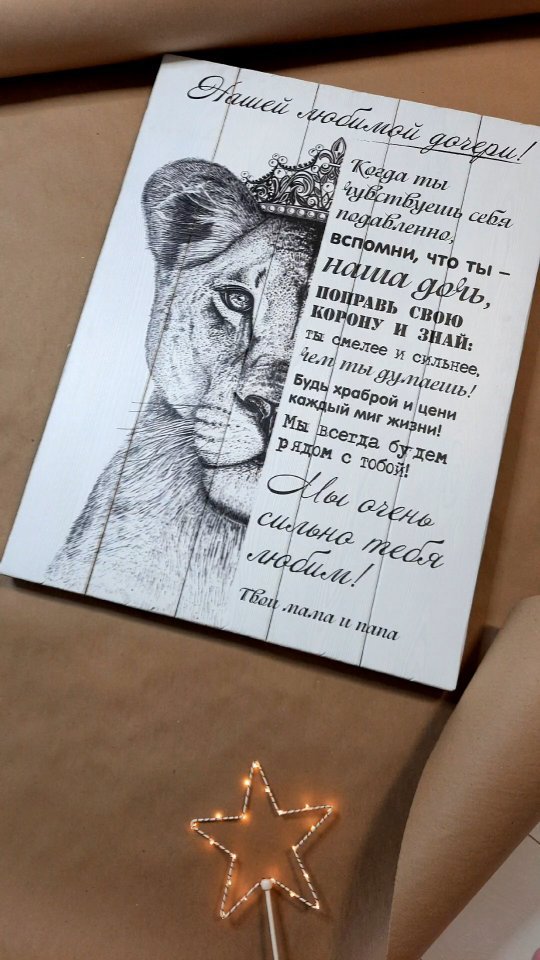 Нашей любимой дочери!
Когда ты
чувствуешь себя
подавленно,
вспомни, что ты –
наша дочь,
поправь свою
корону и знай:
ты смелее и сильнее,
чем ты думаешь!
Будь храброй и цени
каждый миг жизни!
Мы всегда будем
рядом с тобой!
Мы очень
сильно тебя
любим!
Твои мама и папа